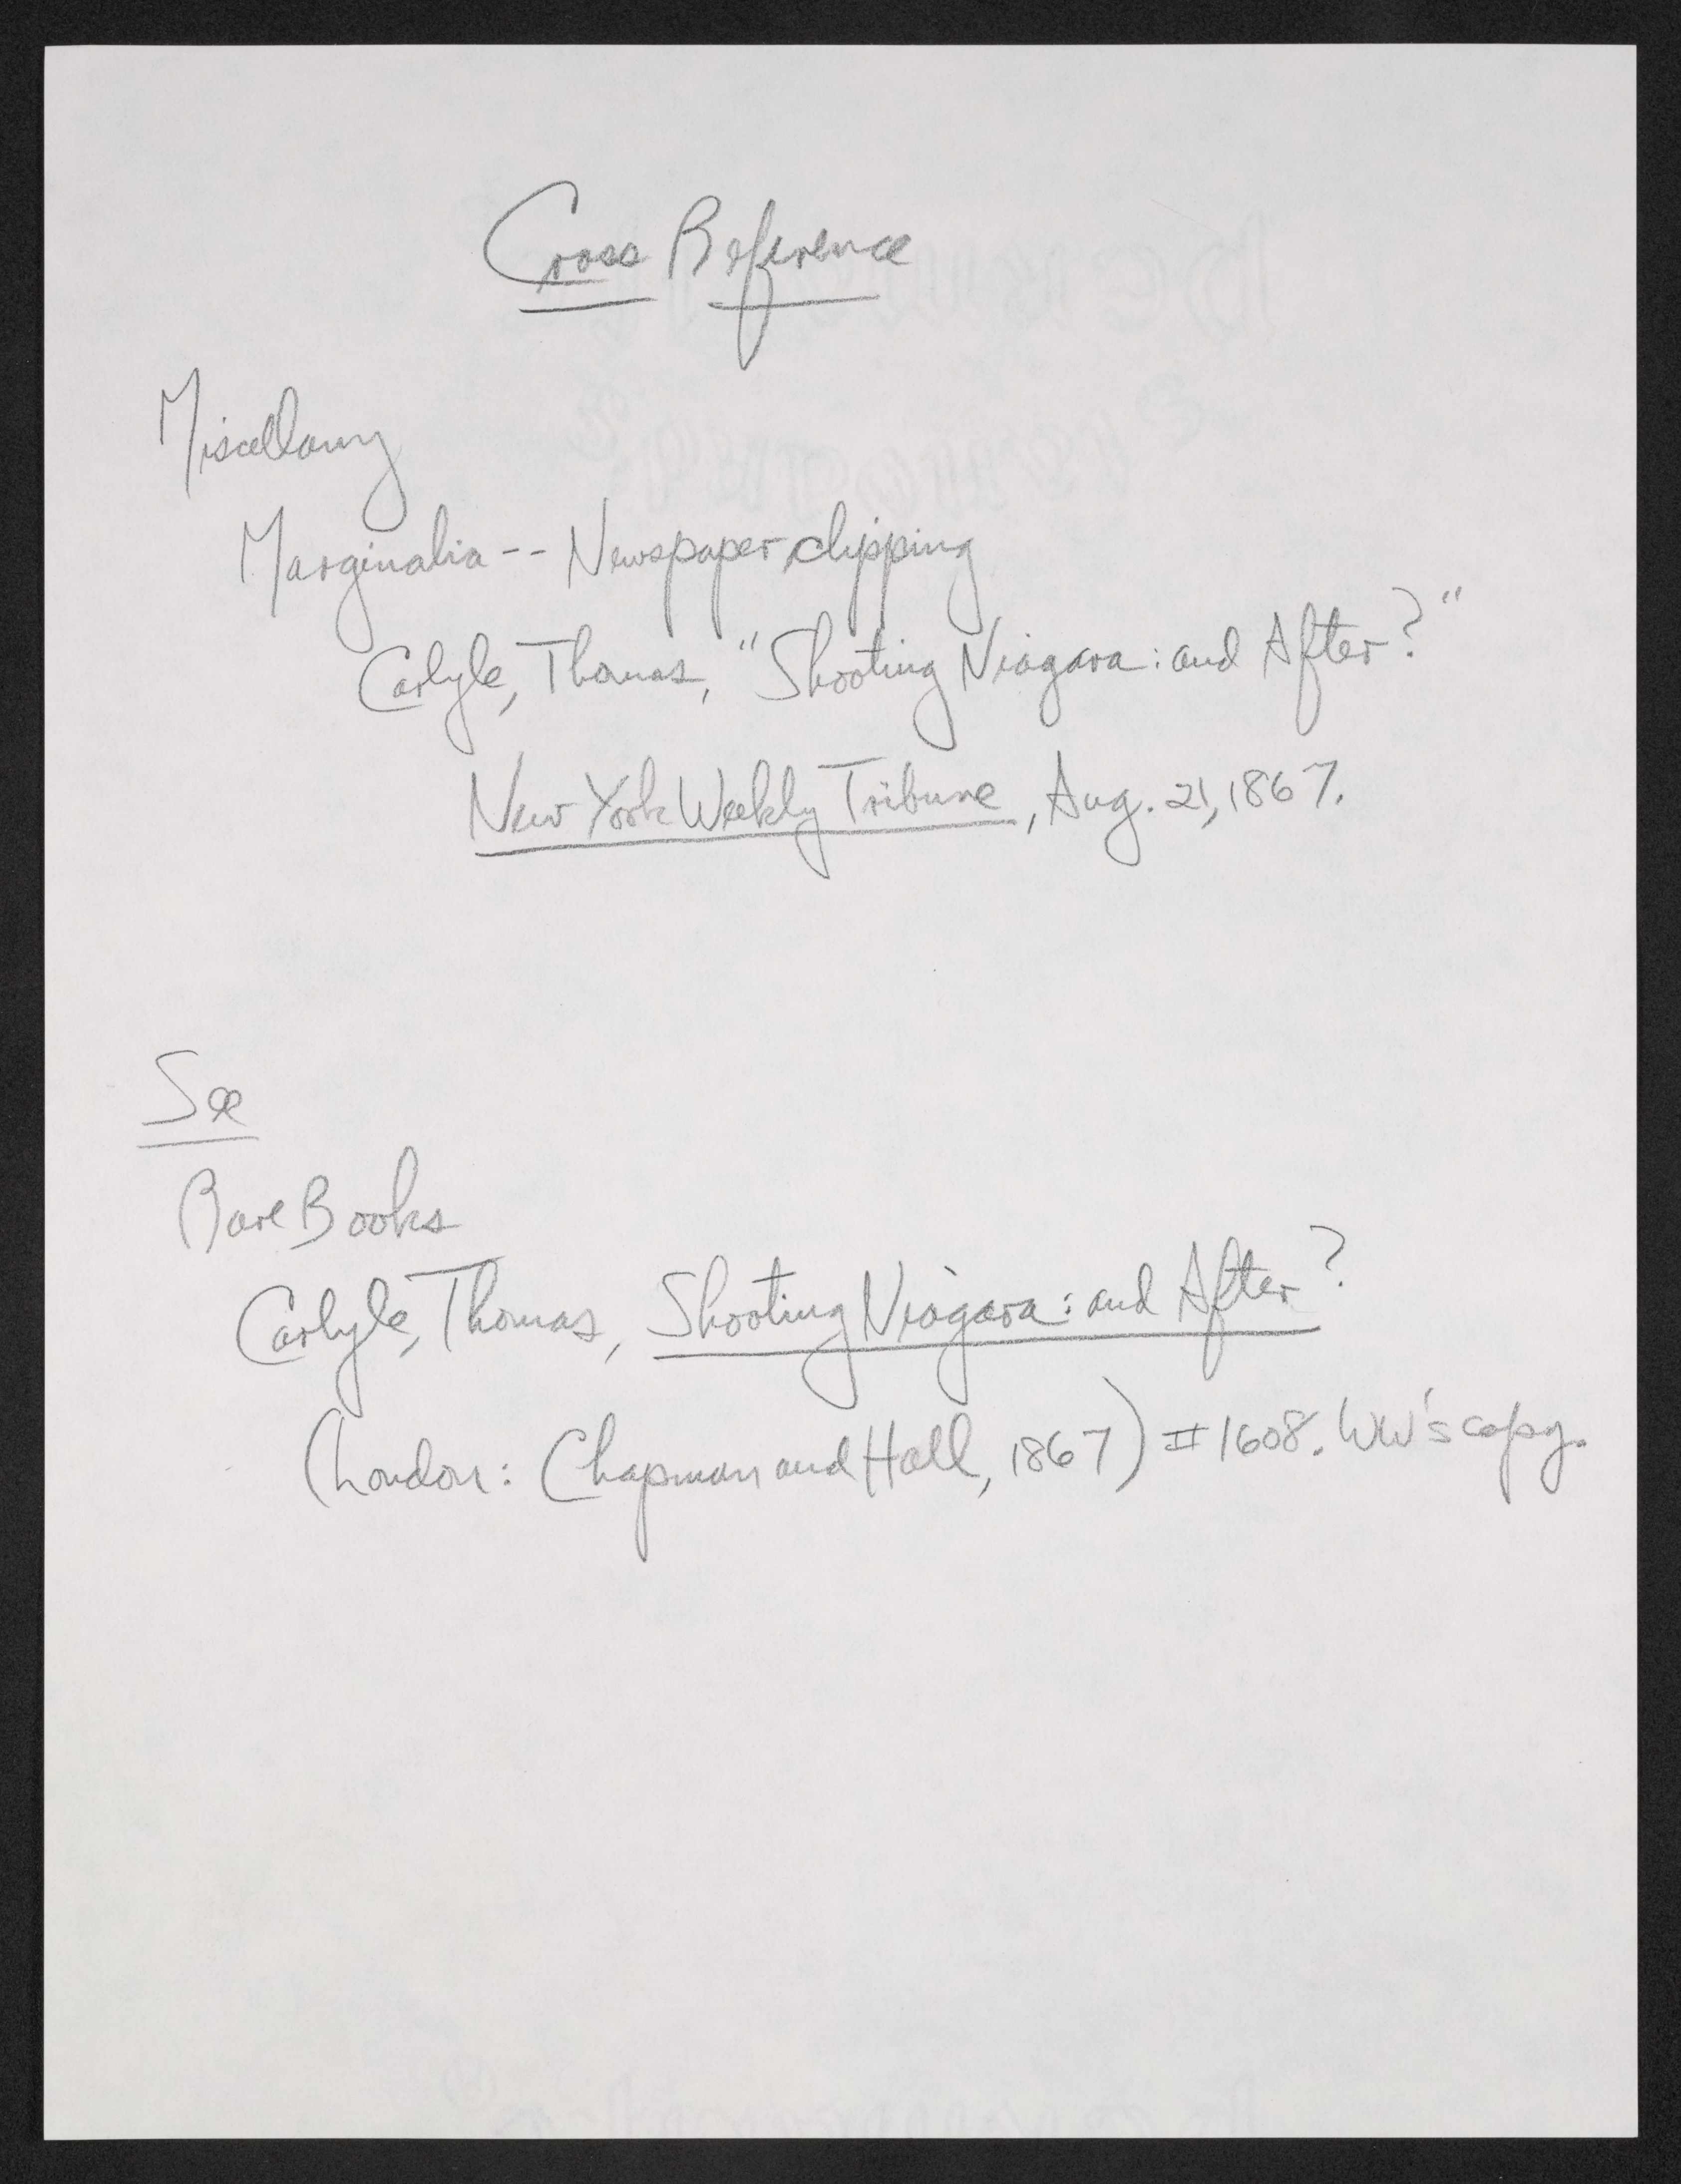 Cross Reference
Miscellany
Marginalia -- Newspaper clipping
Carlyle, Thomas, "Shooting Niagara: and After?"
New York Weekly Tribune, Aug. 21, 1867.
See
Rare Books
Carlyle, Thomas, Shooting Niagara: and After?
(London: Chapman and Hall, 1867) #1608. WW's copy.